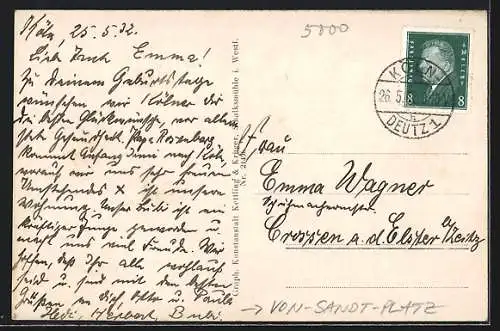 Köln, 25.5.32.
Liebe Tante Emma!
Zu Deinem Geburtstage
wünschen wir Kölner Dir
die besten Glückwünsche, vor allem
gute Gesundheit. Rosenberg
kommt Anfang Juni nach Köln
worauf wir uns sehr freuen.
ist unsere
Wohnung. Unser Bubi ist ein
kräftiger Junge geworden u.
macht uns viel Freude. Wir
hoffen, daß Ihr alle wohlauf
seid u. sind mit den besten
Grüßen an Dich, Otto u. Paula
Hedi, Herbert, Bubi.
Graph. Kunstanstalt Kettling & Krüger, Schalksmühle i. Westf.
5000
Deutsches Reich
8 8
KÖLN
26.5.
DEUTZ 1
Frau
Emma Wagner
Crossen a. d. Elster b/Zeitz
→ VON-SANDT-PLATZ